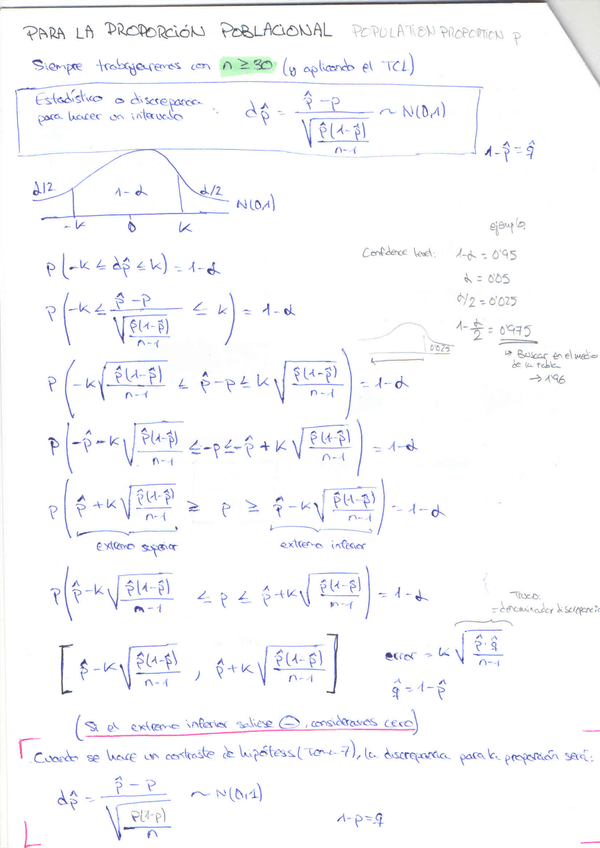 PARA LA PROPORCIÓN POBLACIONAL POPULATION PROPORTION P
Siempre trabajaremos con n ≥ 30 (y aplicando el TCL)
Estadístico o discrepancia para hacer un intervalo : dp̂ = (p̂ - p) / √(p̂(1-p̂)/(n-1)) ~ N(0,1)
1-p̂ = q̂
α/2 1-α α/2 N(0,1)
-K 0 K
ejemplo:
Confidence level: 1-α = 0'95
α = 0'05
α/2 = 0'025
1-α/2 = 0'975
→ Buscar en el medio de la tabla
→ 1'96
0'025
P(-K ≤ dp̂ ≤ K) = 1-α
P(-K ≤ (p̂ - p) / √(p̂(1-p̂)/(n-1)) ≤ K) = 1-α
P(-K √(p̂(1-p̂)/(n-1)) ≤ p̂ - p ≤ K √(p̂(1-p̂)/(n-1))) = 1-α
P(-p̂ - K √(p̂(1-p̂)/(n-1)) ≤ -p ≤ -p̂ + K √(p̂(1-p̂)/(n-1))) = 1-α
P(p̂ + K √(p̂(1-p̂)/(n-1)) ≥ p ≥ p̂ - K √(p̂(1-p̂)/(n-1))) = 1-α
extremo superior extremo inferior
P(p̂ - K √(p̂(1-p̂)/(n-1)) ≤ p ≤ p̂ + K √(p̂(1-p̂)/(n-1))) = 1-α
[p̂ - K √(p̂(1-p̂)/(n-1)) , p̂ + K √(p̂(1-p̂)/(n-1))]
= denominador discrepancia
error = K √(p̂·q̂/(n-1))
q̂ = 1-p̂
(Si el extremo inferior saliese ⊖, consideramos cero)
Cuando se hace un contraste de hipótesis (Tema 7), la discrepancia para la proporción será:
dp̂ = (p̂ - p) / √(p(1-p)/n) ~ N(0,1)
1-p = q